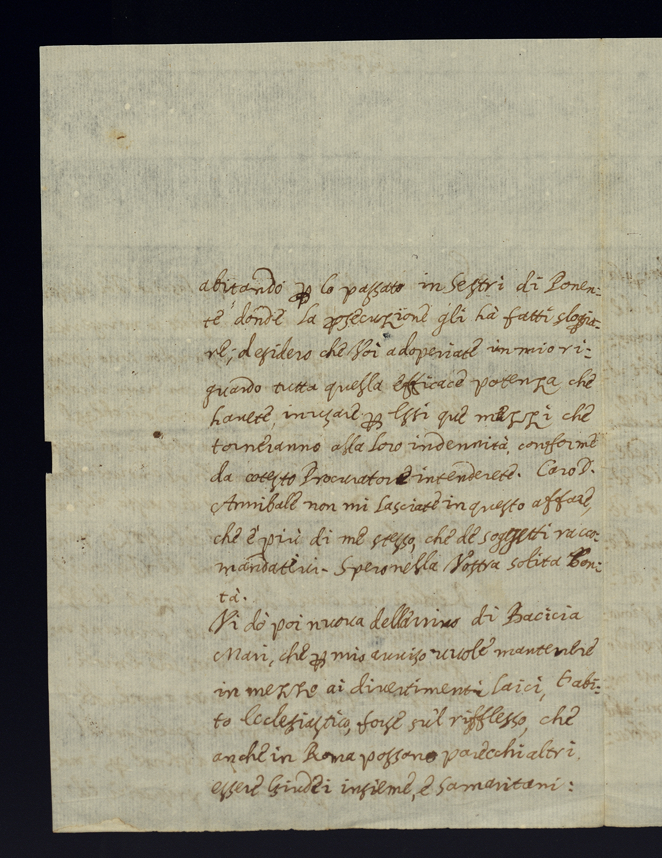 abitando ꝑ lo passato in Sestri di Ponen-
te donde la ꝑsecuzione gli hà fatti sloggia-
re; desidero che Voi adoperiate in mio ri-
guardo tutta quella efficace potenza che
havete, in usare ꝑ Essi que mezzi che
torneranno alla loro indennità, conforme
da cotesto Procuratore intenderete. Caro D.
Annibale non mi lasciate in questo affare,
che è più di me stesso, che de soggetti racco-
mandativi. Spero nella Vostra solita bon-
tà.
Vi dò poi nuova dell'arrivo di Bacicia
Mari, che ꝑ mio avviso vuole mantenere
in mezzo ai divertimenti laici, l'abi-
to Ecclesiastico, forse sul riflesso, che
anche in Roma possano parecchi altri,
essere Giudei insieme, e Samaritani: